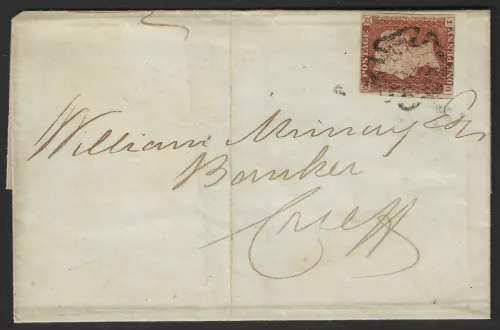 POSTAGE
William Murray Esq
Banker
Crieff